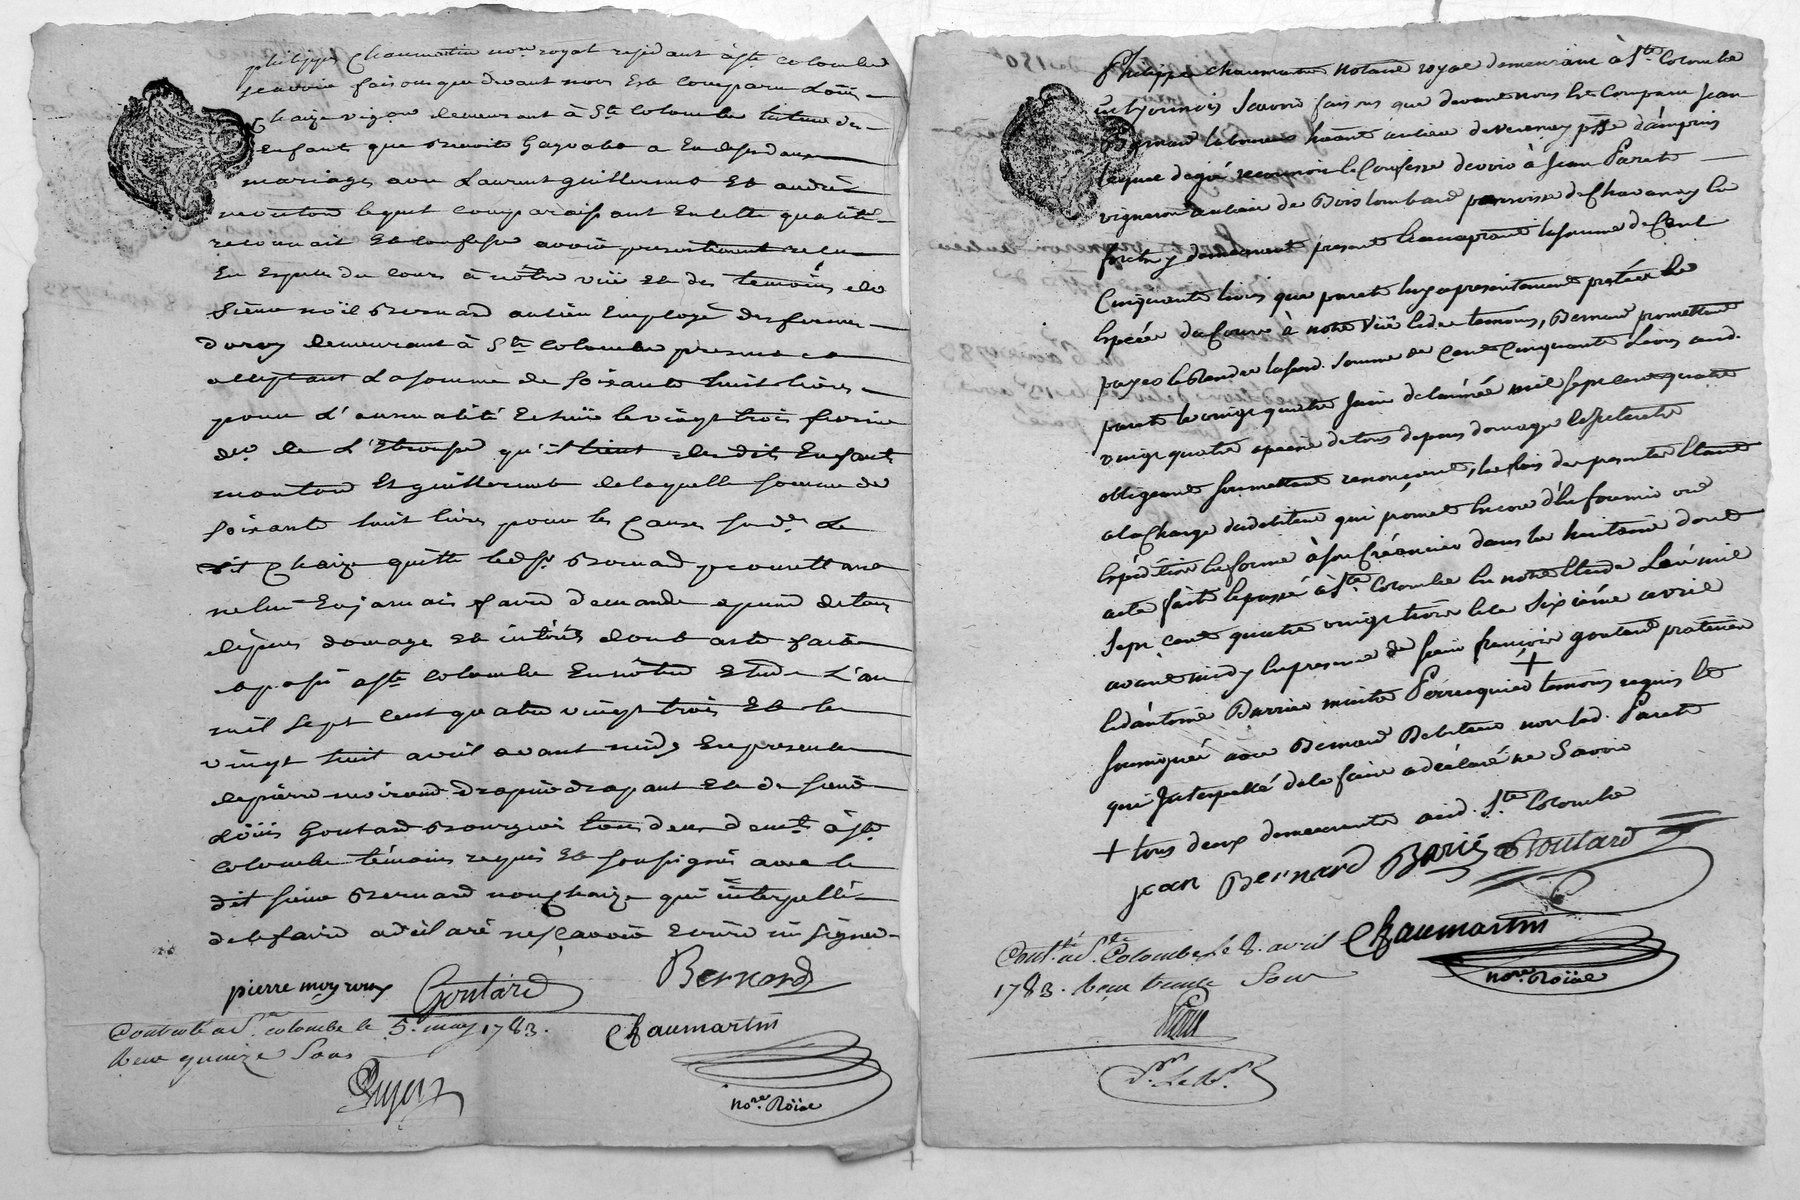 philippe Chaumartin nore royal residant à ste colombe
scavoir faisons que devant nous est comparu Loüis
Chaize vigon demeurant à Ste Colombe tuteur des
enfants que Benoite a eu des deux
mariages avec Laurent guillermet et andré
mouton lequel comparaissant en cette qualité
reconnait et confesse avoir presentement reçu
en especes du cours à nôtre vüe et des temoins du
Sieur noël Bernard ancien employé des fermes
du roy demeurant à Ste Colombe present et
acceptant La somme de soixante huit livres
pour L'annualité echüe le vingt trois fevrier
der de L' qu'il tient des dits Enfants
mouton et guillermet de laquelle somme de
soixante huit livres pour les causes susd. Le
dit Chaize quitte led. sr. Bernard promettant
ne lui en jamais faire demande a peine de tous
depens domage et intérêts dont acte fait
et passé à ste colombe en nôtre Etude L'an
mil sept cent quatre vingt trois et le
vingt huit avril avant midy en presence
de pierre drapier drapant et de sieur
Loüis Goutard Bourgeois tous deux demts. à ste
colombe témoins requis et soussignés avec le
dit sieur Bernard non Chaize qui interpellé
de le faire a déclaré ne sçavoir ecrire ni signer
pierre Goutard Bernard
Controlé à Ste. colombe le 5. may 1783.
Reçu quinze Sous
Chaumartin
nore. Roïal
Philippe Chaumartin notaire royal demeurant à Ste Colombe
en lyonnois Scavoir faisons que devant nous Est Comparu Jean
Bernard laboureur du lieu de Verenay psse d'ampuis
lequel de gré reconnoit et Confesse devoir à Jean Paret
vigneron du lieu de Boislombard parroisse de Chavanay le
present et acceptant la somme de Cent
Cinquante livres que paret luy a presentement prétée en
Espéces du Cours à notre Vüe et des temoins, Bernard promettant
payer et Rendre lad. Somme de Cent Cinquante Livres aud.
paret le vingt quatre juin de l'année mil sept cent quatre
vingt quatre a peine de tous depens domage et intérets
obligeant soumettant renonçant, les frais des presentes Etant
a la Charge du debiteur qui promet encore d'en fournir une
Expédition en forme à son Créancier dans la huitaine dont
acte fait et passé à Ste. Colombe en notre Etude L'an mil
Sept cent quatre vingt trois et le Sixième avril
avant midy en presence de Sieur françois goutard praticien
et d'antoine Barrier maitre Perruquier + temoins requis et
soussignés avec Bernard Debiteur non led. Paret
qui Interpellé de le faire a déclaré ne Savoir
+ tous deux demeurants aud. Ste Colombe
jean Bernard Barié Goutard
Chaumartin
nore. Roïal
Cont. à Ste. Colombe le 8. avril
1783. Reçu trente Sous